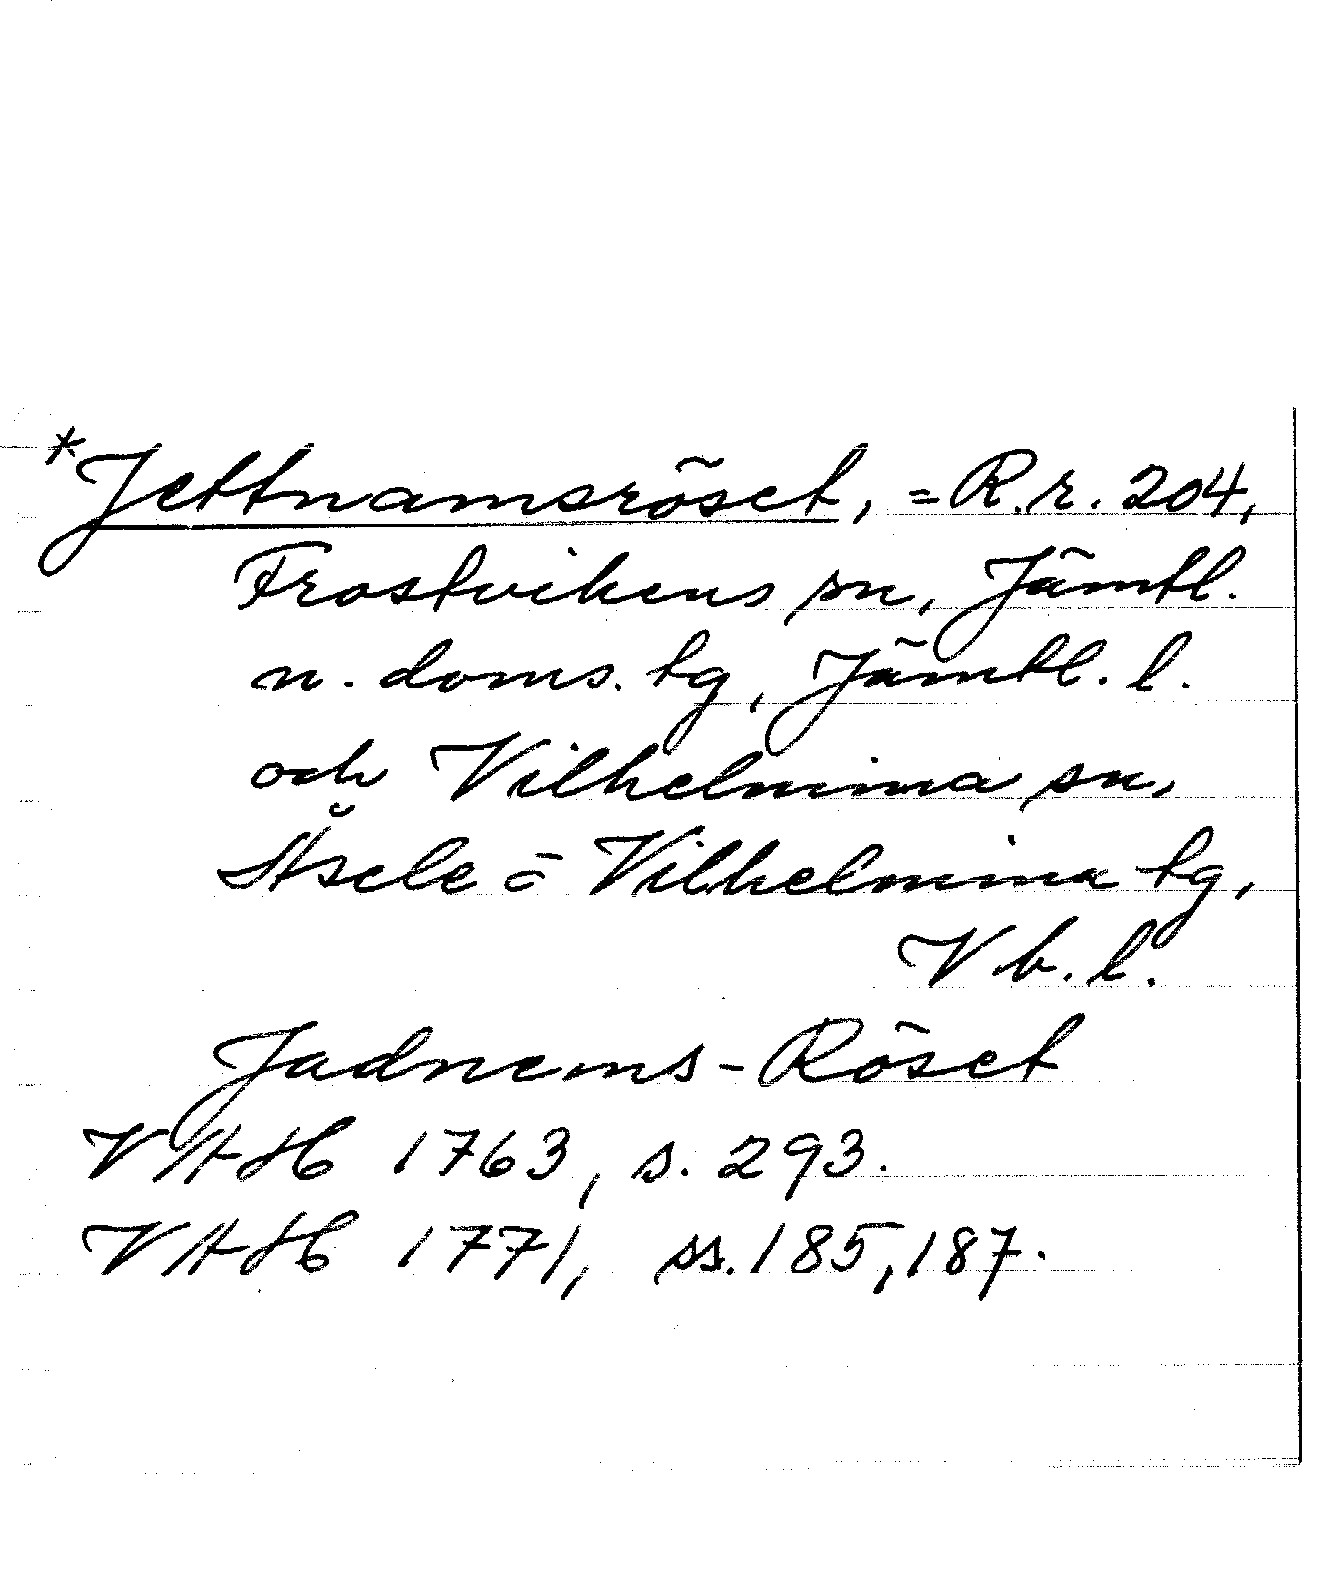 *Jettnamsröset, = R.r. 204,
Frostvikens sn, Jämtl.
n. doms. tg, Jämtl. l.
och Vilhelmina sn,
Åsele o Vilhelmina tg,
Vb. l.
Jadnems-Röset
VAH 1763, s. 293.
VAH 1771, ss. 185, 187.